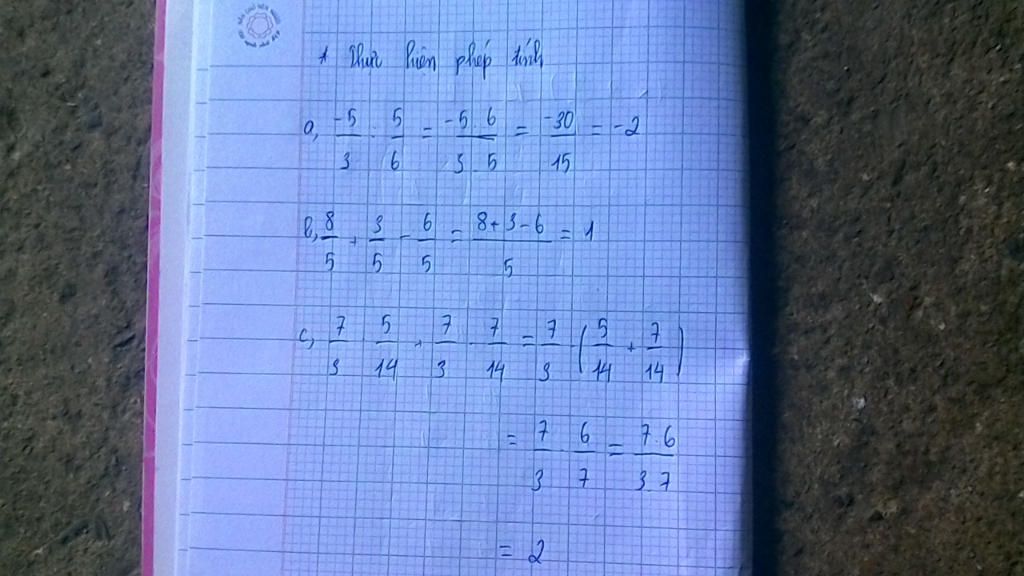 1 Thực hiện phép tính
a, -5/3 : 5/6 = -5.6/3.5 = -30/15 = -2
b, 8/5 + 3/5 - 6/5 = 8+3-6/5 = 1
c, 7/3 . 5/14 + 7/3 . 7/14 = 7/3 . (5/14 + 7/14)
= 7/3 . 6/7 = 7.6/3.7
= 2